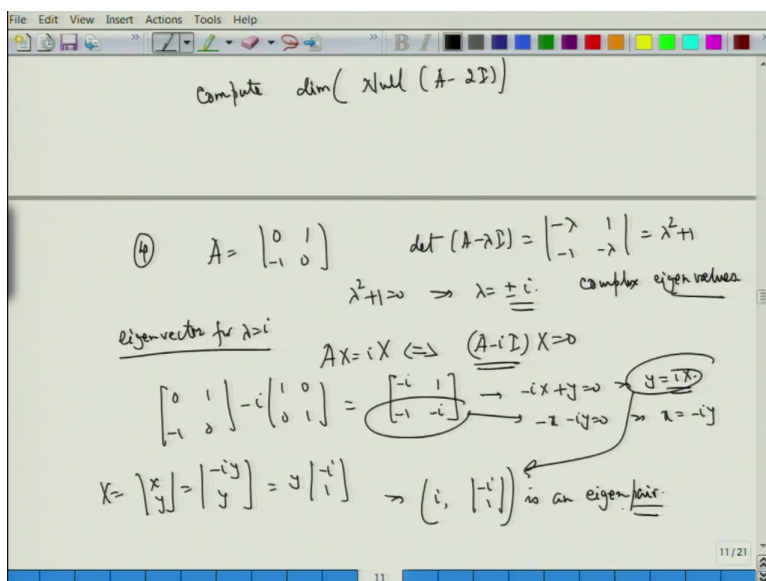 File Edit View Insert Actions Tools Help
Compute dim( Null (A- 2I))
④ A = [0 1 -1 0] det (A-λI) = |-λ 1 -1 -λ| = λ²+1
λ²+1=0 ⇒ λ= ± i. Complex eigenvalues
eigenvector for λ=i
AX=iX <=> (A-iI) X=0
[0 1 -1 0] -i [1 0 0 1] = [-i 1 -1 -i] → -ix+y=0 → y=ix
→ -x -iy=0 ⇒ x = -iy
X= [x y] = [-iy y] = y [-i 1] ⇒ (i, [-i 1]) is an eigenpair.
11/21
11